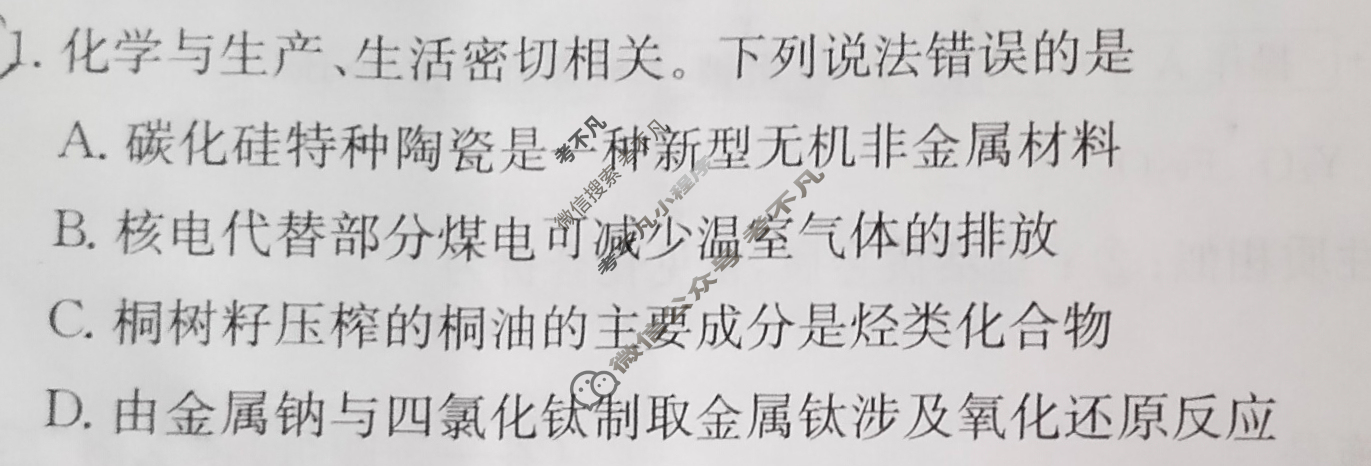 1. 化学与生产、生活密切相关。下列说法错误的是
A. 碳化硅特种陶瓷是一种新型无机非金属材料
B. 核电代替部分煤电可减少温室气体的排放
C. 桐树籽压榨的桐油的主要成分是烃类化合物
D. 由金属钠与四氯化钛制取金属钛涉及氧化还原反应
考不凡
微信搜索
考不凡小程序
微信公众号 考不凡